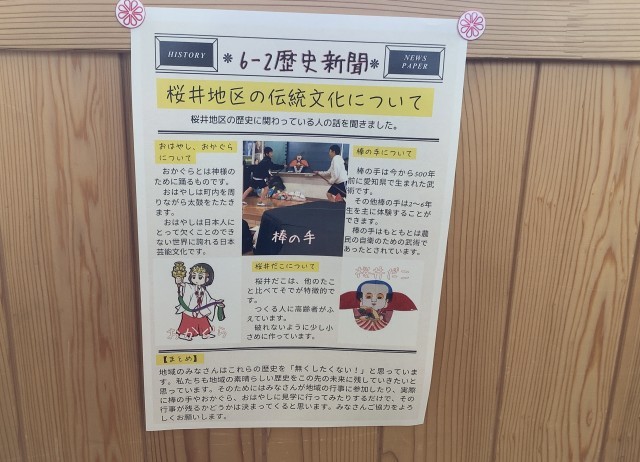 HISTORY
6-2歴史新聞
NEWS
PAPER
桜井地区の伝統文化について
桜井地区の歴史に関わっている人の話を聞きました。
おはやし、おかぐら
について
おかぐらとは神様の
ために踊るものです。
おはやしは町内を周
りながら太鼓をたたき
ます。
おはやしは日本人に
とって欠くことのでき
ない世界に誇れる日本
芸能文化です。
棒の手
棒の手について
棒の手は今から500年
前に愛知県で生まれた武
術です。
その他棒の手は2〜6年
生を主に体験することが
できます。
棒の手はもともとは農
民の自衛のための武術で
あったとされています。
桜井だこについて
桜井だこは、他のたこ
と比べてそでが特徴的で
す。
つくる人に高齢者がふ
えています。
破れないように少し小
さめに作っています。
桜井だこ
【まとめ】
地域のみなさんはこれらの歴史を「無くしたくない！」と思っていま
す。私たちも地域の素晴らしい歴史をこの先の未来に残していきたいと
思っています。そのためにはみなさんが地域の行事に参加したり、実際
に棒の手やおかぐら、おはやしに見学に行ってみたりするだけで、その
行事が残るかどうかは決まってくると思います。みなさんご協力をよろ
しくお願いします。